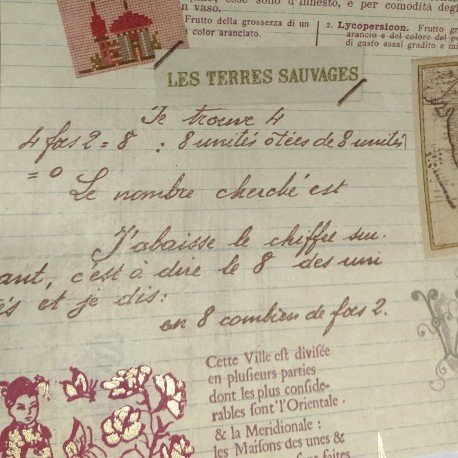 esse sono d'innesto, e per comodità degli
in vaso.
Frutto della grossezza di un
color aranciato.
2. Lycopersicon. Frutto
arancio e del colore del
di gusto assai gradito e
LES TERRES SAUVAGES
Je trouve 4
4 fois 2 = 8 : 8 unités ôtées de 8 unités
= 0
Le nombre cherché est
J'abaisse le chiffre sui
ant, c'est à dire le 8 des uni
és et je dis:
en 8 combien de fois 2.
Cette Ville est divisée
en plusieurs parties
dont les plus conside-
rables sont l'Orientale.
& la Meridionale:
les Maisons des unes &
sont faites